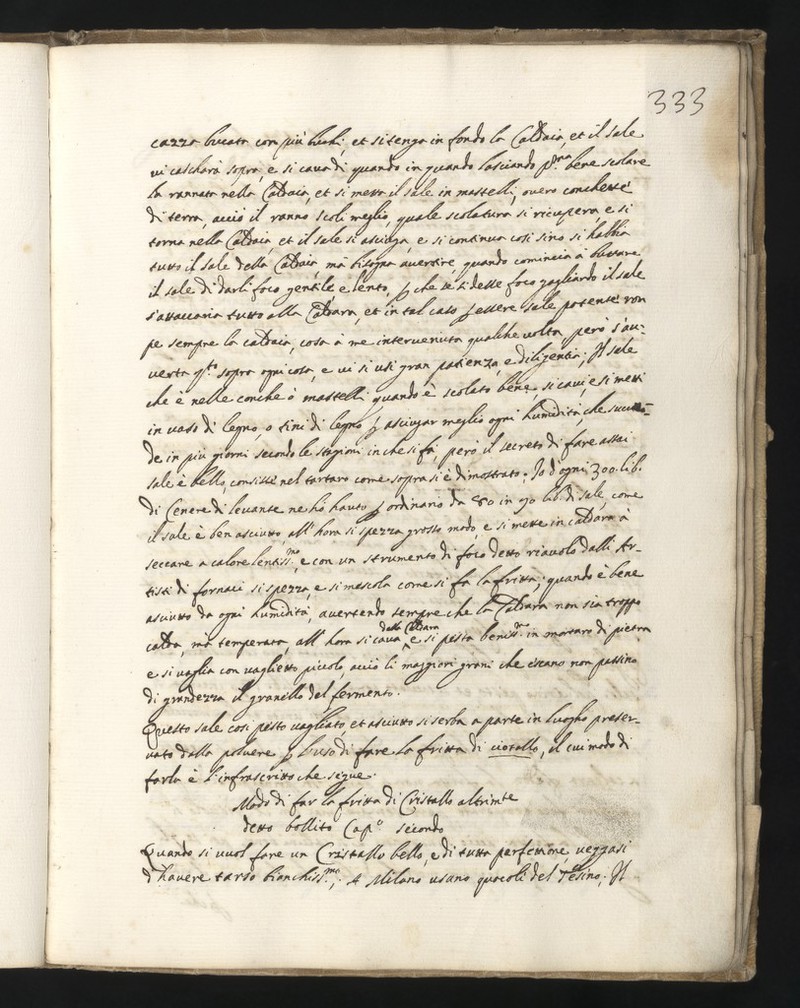 333
cazza bucata con più buchi, et si tenga in fondo la Caldaia, et il sale
vi cascharà sopra, e si cava di quando in quando lasciando p.ma bene scolare
la rannata nella Caldaia, et si metta il sale in mastelli, overo conchette
di terra, acciò il ranno scoli meglio, quale scolatura si ricupera, e si
torna nella Caldaia, et il sale si asciuga, e si continua così sino si habbia
tutto il sale della Caldaia, mà bisogna avertire, quando comincia à buttare
il sale di darli foco gentile, e lento, p che se si desse foco gagliardo il sale
s'attaccaria tutto alla Caldara, et in tal caso p essere sale potente rom
pe sempre la caldaia, cosa à me intervenuta qualche volta, però s'au-
verta q.to sopra ogni cosa, e vi si usi gran patienza, e diligentia; Il sale
che è nelle conche ò mastelli, quando è scolato bene, si cavi, e si metti
in vasi di legno, o tini di legno p asciugar meglio ogni humidità, che succe-
de in più giorni secondo le stagioni in che si fà, però il secreto di fare assai
sale è bello, consiste nel tartaro come sopra si è dimostrato; Io d'ogni 300. lib.
di Cenere di levante ne hò hauto p ordinario da 80 in 90 lib. di sale, come
il sale è ben asciutto, all' hora si spezza grosso modo, e si mette in caldara à
seccare a calore lentiss.mo, e con un strumento di foco detto riavolo dalli Ar-
tisti di fornaci si spezza, e si mescola come si fà la fritta; quando è bene
asciutto da ogni humidità, avertendo sempre che la Caldara non sia troppo
calda, mà temperata, all' hora si cava dalla Caldara e si pesta beniss.mo in mortaro di pietra
e si vaglia con vaglietto piccolo, acciò li maggiori grani che escano non passino
di grandezza il granello del fermento.
Questo sale così pesto vagliato, et asciutto si serba a parte in luogho preser-
vato dalla polvere p l'uso di fare la fritta di cristallo, il cui modo di
farla è l'infrascritto che segue.
Modo di far la fritta di Cristallo altrimte
detto bollito Cap.o secondo
Quando si vuol fare un Cristallo bello, e di tutta perfettione, veggasi
d'havere tarso bianchiss.mo; A Milano usano quocoli del Tesino; Il